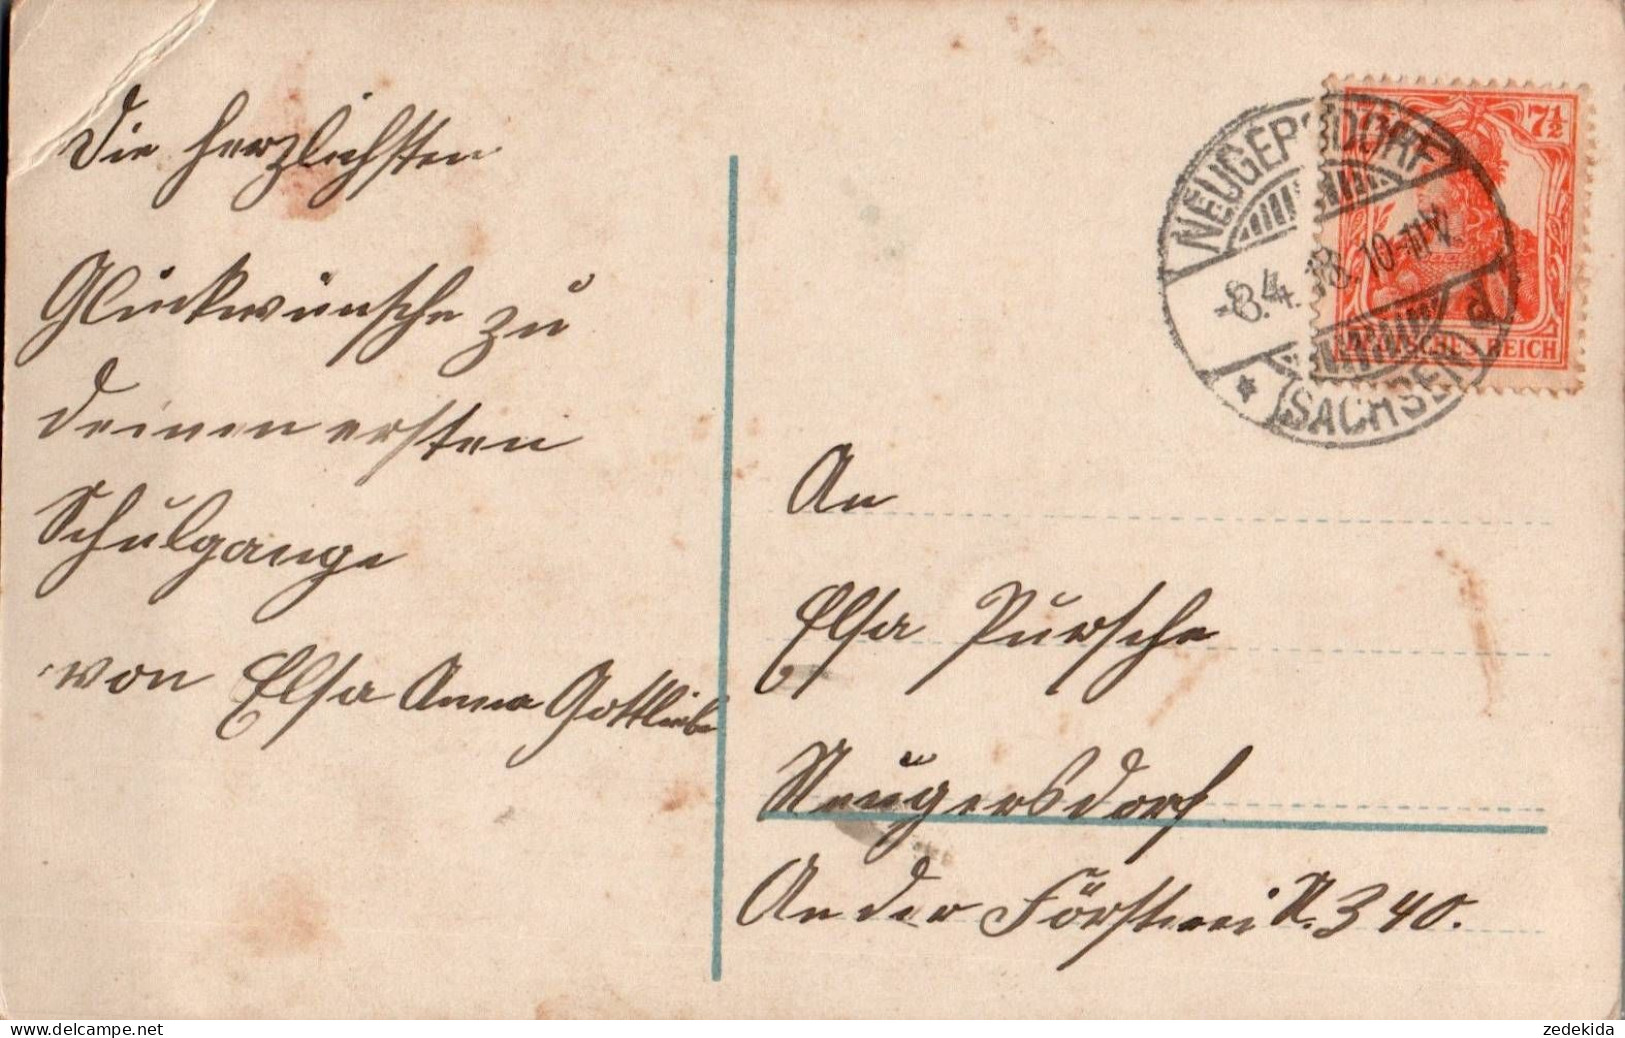 Die herzlichsten
Glückwünsche zu
deinen ersten
Schulgange
von Elsa Anna Gottliebe
NEUGERSDORF
-8.4.18. 10-11V.
* (SACHSEN) d
7½
DEUTSCHES REICH
An
Elsa Pursche
Neugersdorf
An der Försterei N. 340.
www.delcampe.net
zedekida